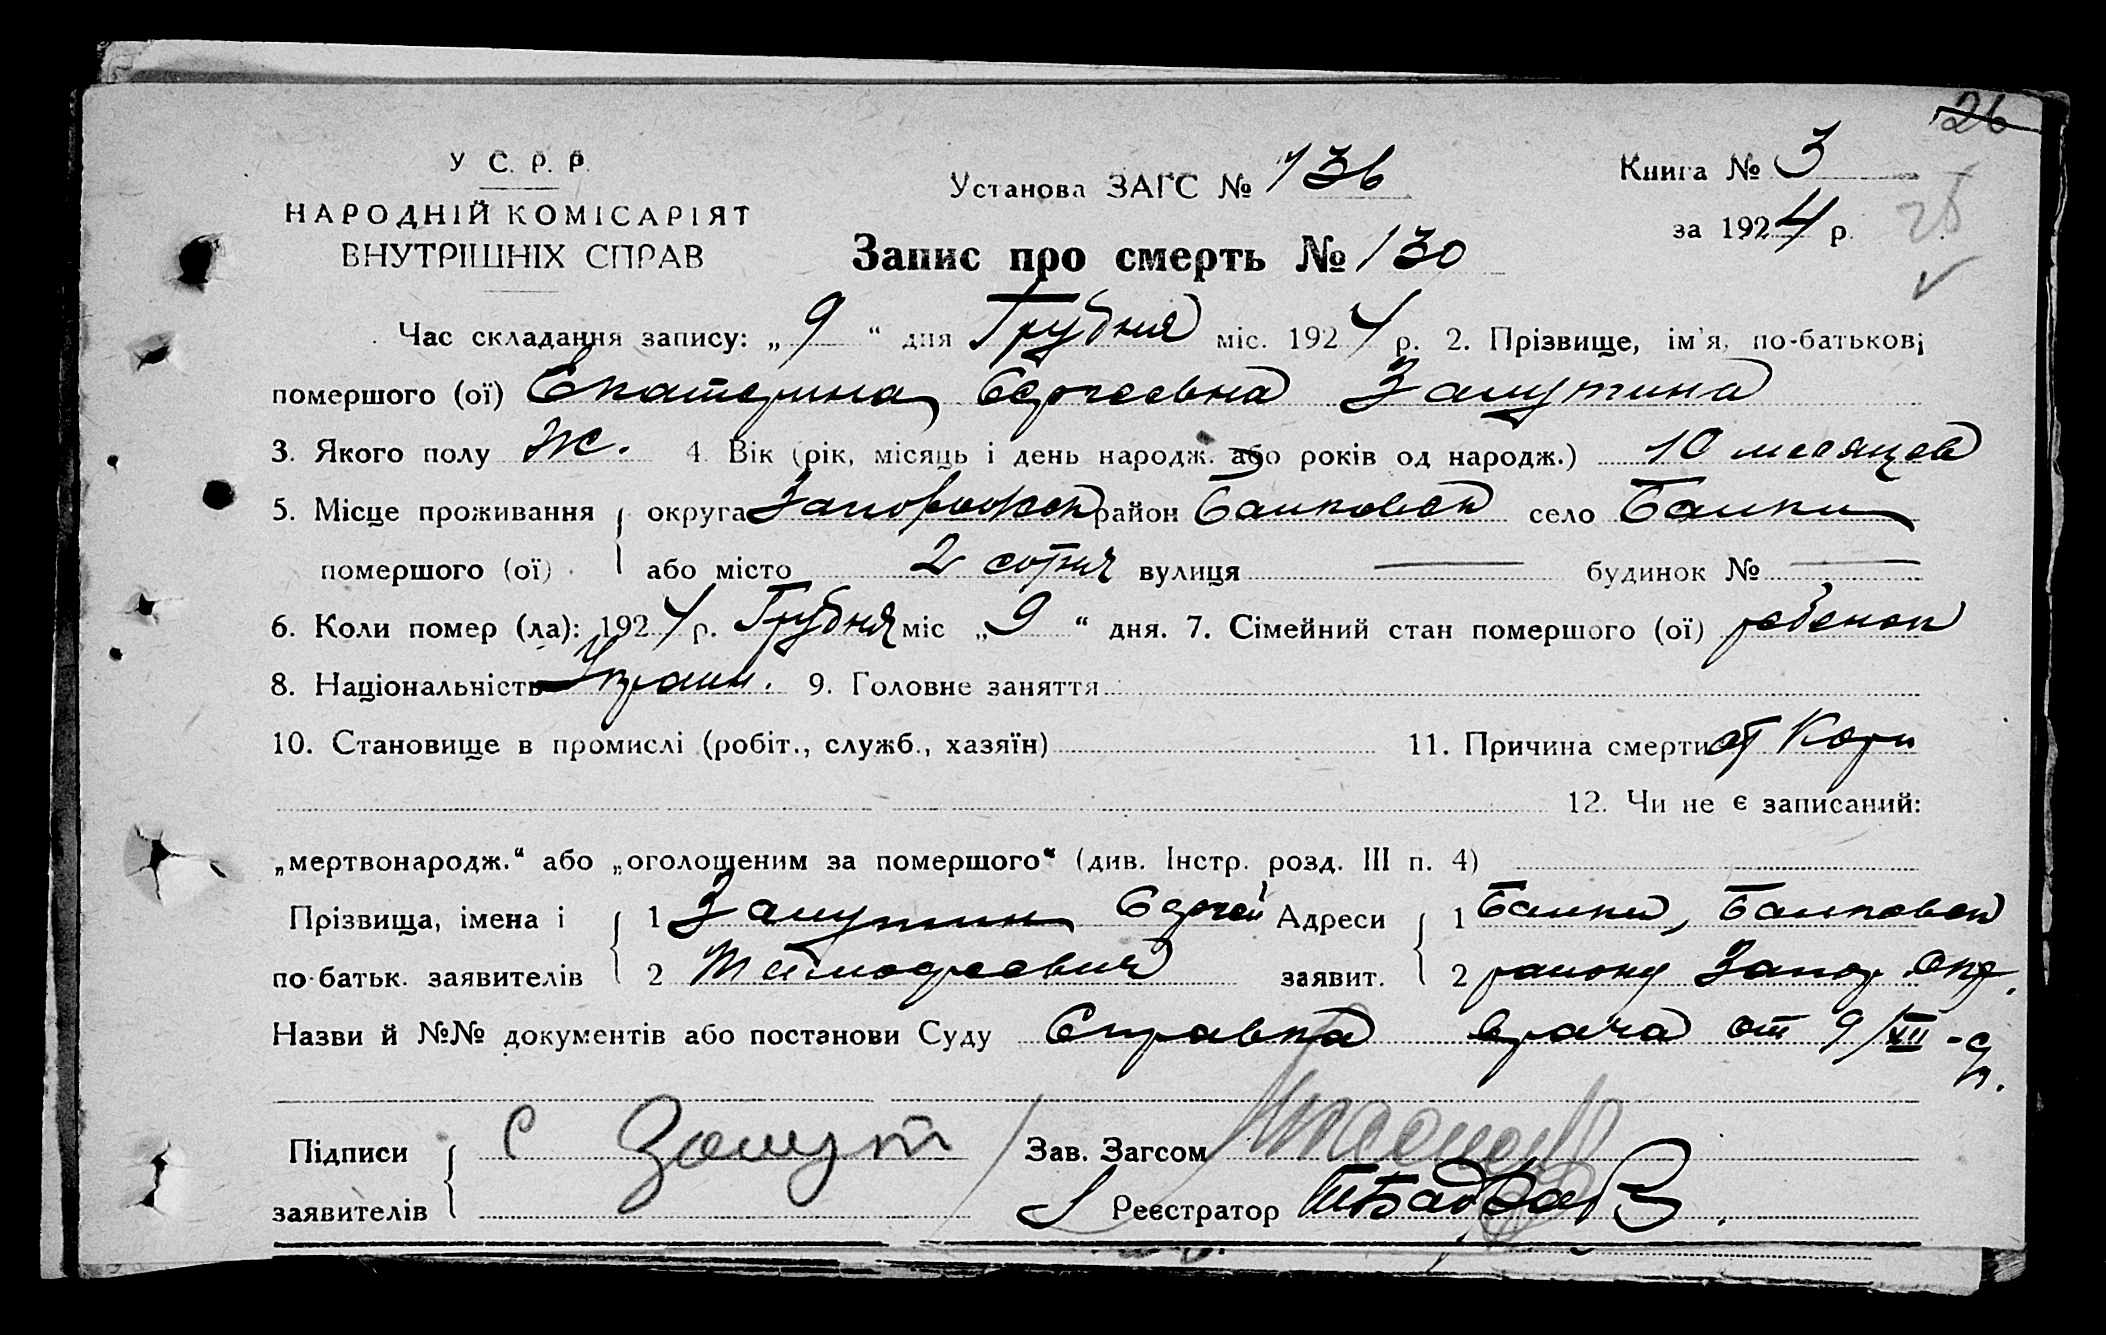 126
У С. Р. Р.
НАРОДНІЙ КОМІСАРІЯТ
ВНУТРІШНІХ СПРАВ
Установа ЗАГС № 136
Книга № 3
за 1924 р.
26
Запис про смерть № 130
Час складання запису: „9“ дня Грудня міс. 1924 р. 2. Прізвище, ім'я, по-батькові
помершого (ої) Екатерина Сергеевна Замутина
3. Якого полу Ж. 4. Вік (рік, місяць і день народж. або років од народж.) 10 месяцев
5. Місце проживання { округа Запорожск район Балковск село Балки
помершого (ої) або місто 2 сотня вулиця — будинок № —
6. Коли помер (ла): 1924 р. Грудня міс „9“ дня. 7. Сімейний стан помершого (ої) ребенок
8. Національність Украин. 9. Головне заняття
10. Становище в промислі (робіт., служб., хазяїн) 11. Причина смерти от Кори
12. Чи не є записаний:
„мертвонародж.“ або „оголошеним за помершого“ (див. Інстр. розд. III п. 4)
Прізвища, імена і { 1 Замутин Сергей Адреси { 1 Балки, Балковск
по-батьк. заявителів 2 Тимофеевич заявит. 2 району Запор. окр.
Назви й №№ документів або постанови Суду Справка врача от 9/XII-с
г.
Підписи { С Замут Зав. Загсом
заявителів Реєстратор